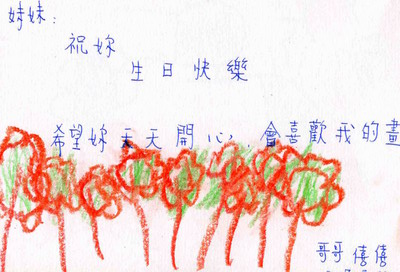 妹妹：
祝妳
生日快樂
希望妳天天開心，會喜歡我的畫
哥哥 僖僖